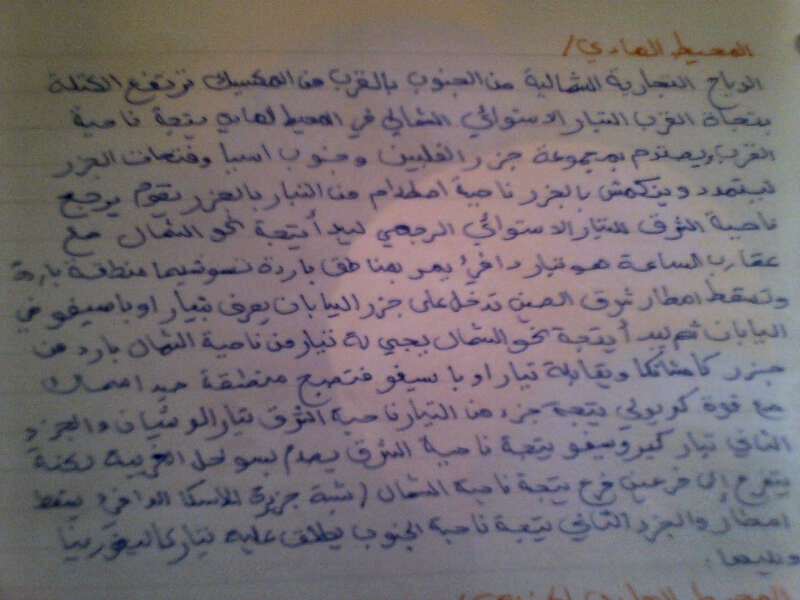 المحيط الهادي/
الرياح التجارية الشمالية من الجنوب بالقرب من المكسيك ترتفع الكتلة
بتجاة الغرب التيار الاستوائي الشمالي في المحيط الهادي يتجة ناحية
الغرب ويصتدم بمجموعة جزر الفلبين وجنوب اسيا وفتحات الجزر
ليتمدد وينكمش بالجزر ناحية اصطدام من التيار بالجزر يقوم يرجع
ناحية الشرق للتيار الاستوائي الرجعي ليبدأ يتجة نحو الشمال مع
عقارب الساعة هو تيار دافيء يمر بمناطق باردة نسوشيما منطقة باردة
وتسقط امطار شرق الصين تدخل على جزر اليابان يعرف بتيار اوياسيفو في
اليابان ثم يبدأ يتجة نحو الشمال يجيي له تيار من ناحية الشمال بارد من
جزر كامشاتكا ويقابلة تيار اوياسيفو فتصبح منطقة صيد اسماك
مع قوة كوريولي يتجة جزء من التيار ناحية الشرق تيار الوشيان والجزء
الثاني تيار كيروسيفو يتجة ناحية الشرق يصدم بسواحل الغربية لكنة
يتفرع إلى فرعين فرع يتجة ناحية الشمال (شبة جزيرة الاسكا الدافيء) يسقط
امطار والجزء الثاني يتجة ناحية الجنوب يطلق علية تيار كاليفورنيا